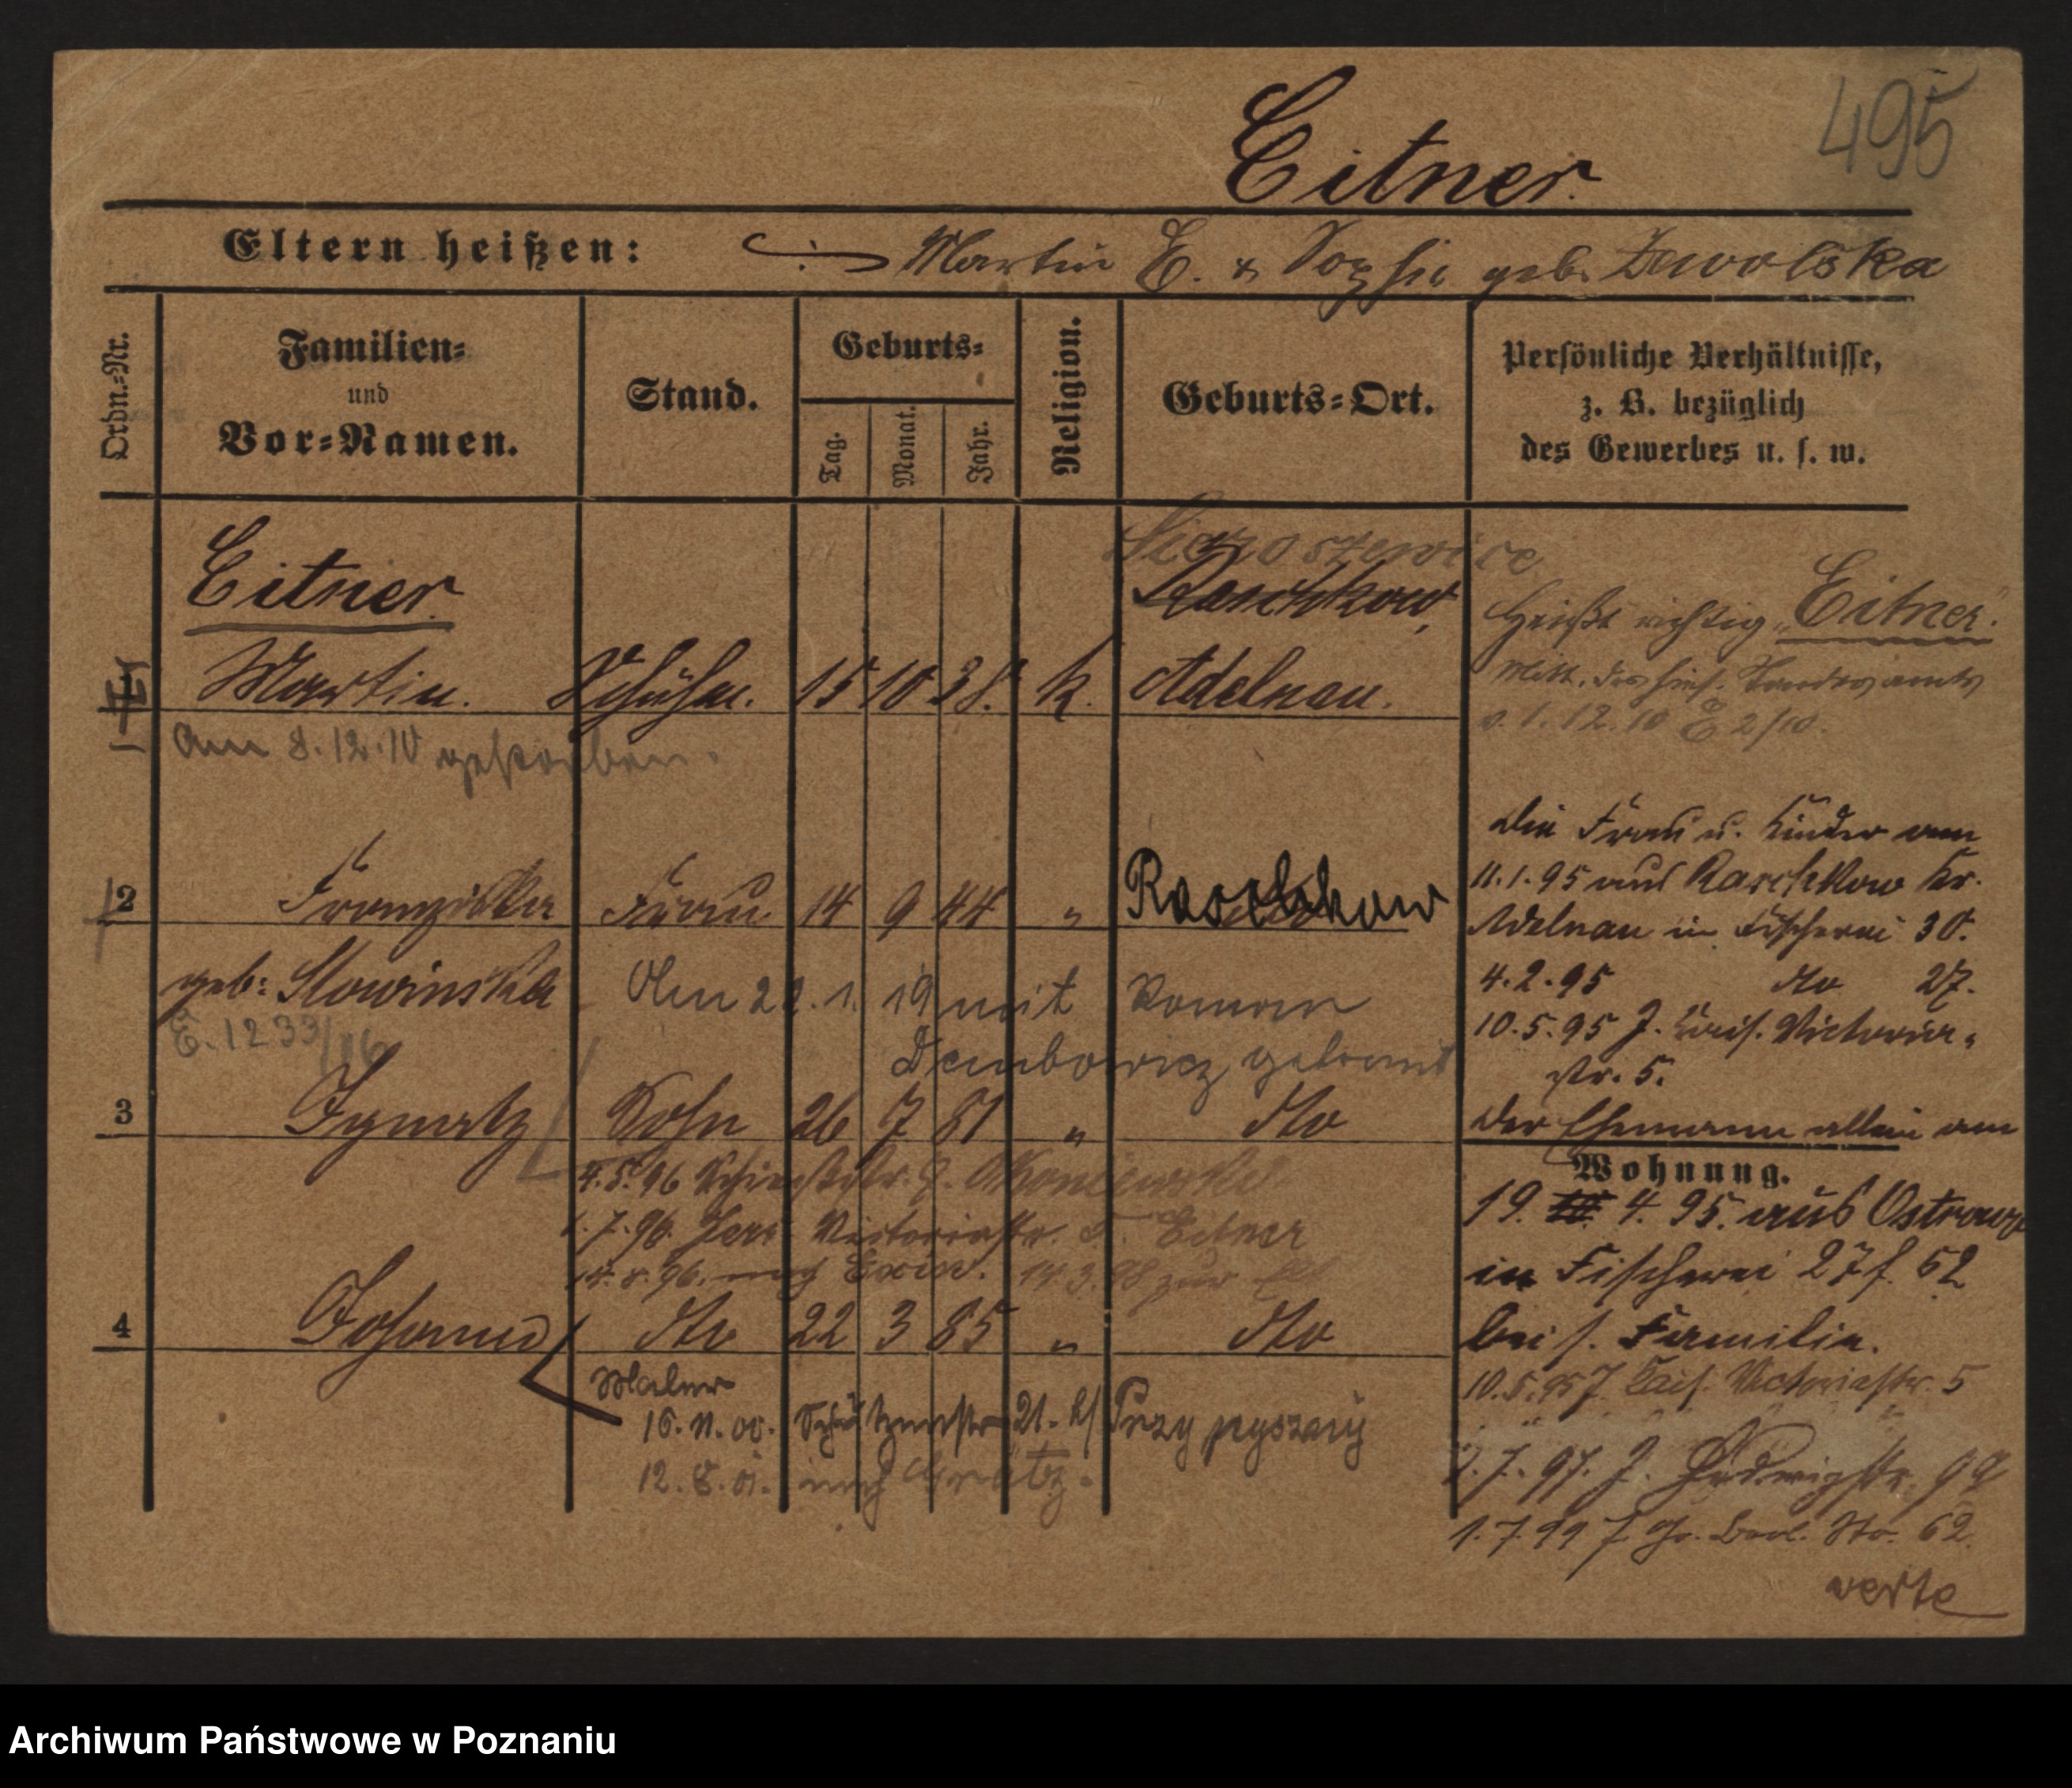 495
Eitner.
Eltern heißen: Martin E. & Sophie geb. Dewolska
Ordn.=Nr.
Familien=
und
Vor=Namen.
Stand.
Geburts=
Tag.
Monat.
Jahr.
Religion.
Geburts=Ort.
Persönliche Verhältnisse,
z. B. bezüglich
des Gewerbes u. s. w.
Sieroszewice
Eitner. Raschkow,
1 Martin. Schuhm. 15 10 38. K. Adelnau.
Heißt richtig „Eitner".
Mitt. des hies. Standesamts
v. 1.12.10 E 2/10.
Am 8.12.10 gestorben.
2 Franziska Frau 14 9 44 " Raschkow
geb: Slowinska
Am 22.1.19 mit Roman
E. 1233/16
Dembowicz getraut
3 Ignatz Sohn 26 7 81 " do
4.5.96 Schießstr. 9.
1.7.96. Victoriastr. 5. Eitner
14.8.96. nach Exin. 14.3.98 zur
4 Johann do 22 3 85 " do
Maler
16.11.00. Schützenstr 21. b/ Przypyszny
12.8.01. nach Grätz.
Die Frau u. Kinder am
11.1.95 aus Raschkow Kr.
Adelnau in Fischerei 30.
4.2.95 do 27.
10.5.95 J. Kais. Victoria=
str. 5.
der Ehemann allein am
Wohnung.
19. 4. 95. aus Ostrowo
in Fischerei 27 f. 52
bei s. Familie.
10.5.95 J. Kais. Victoriastr. 5
2.7.97. J. Hedwigstr. 9
1.7.99 J. Gr. Berl. Str. 62
verte
Archiwum Państwowe w Poznaniu